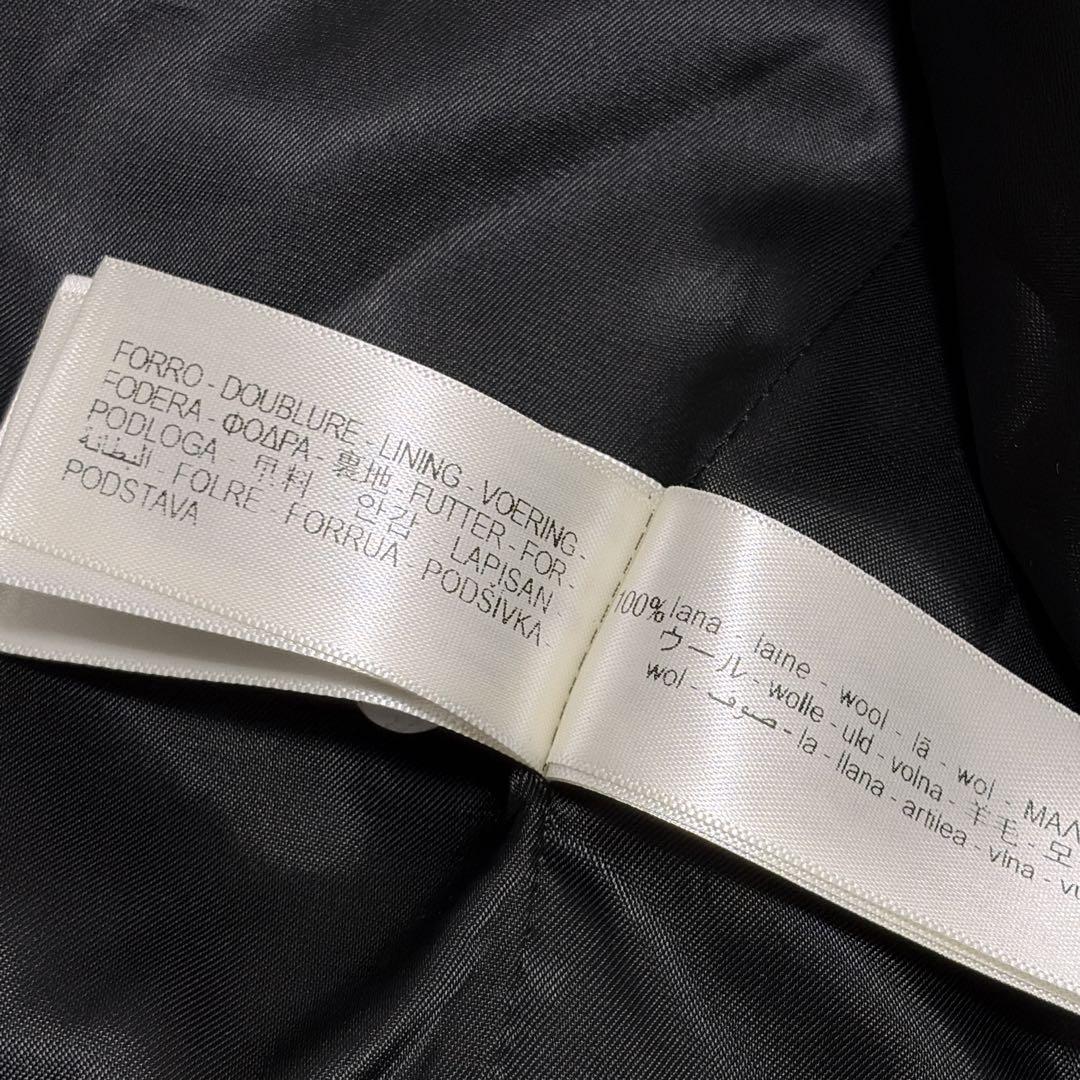 FORRO - DOUBLURE - LINING - VOERING -
FODERA - ΦΟΔΡΑ - 裏地 - FUTTER - FOR-
PODLOGA - 里料 - 안감 - LAPISAN -
البطانة - FOLRE - FORRUA - PODŠIVKA -
PODSTAVA
100% lana - laine - wool - lã - wol - ΜΑΛ
ウール - wolle - uld - volna - 羊毛 - 모
wol - صوف - la - llana - artilea - vlna - vu